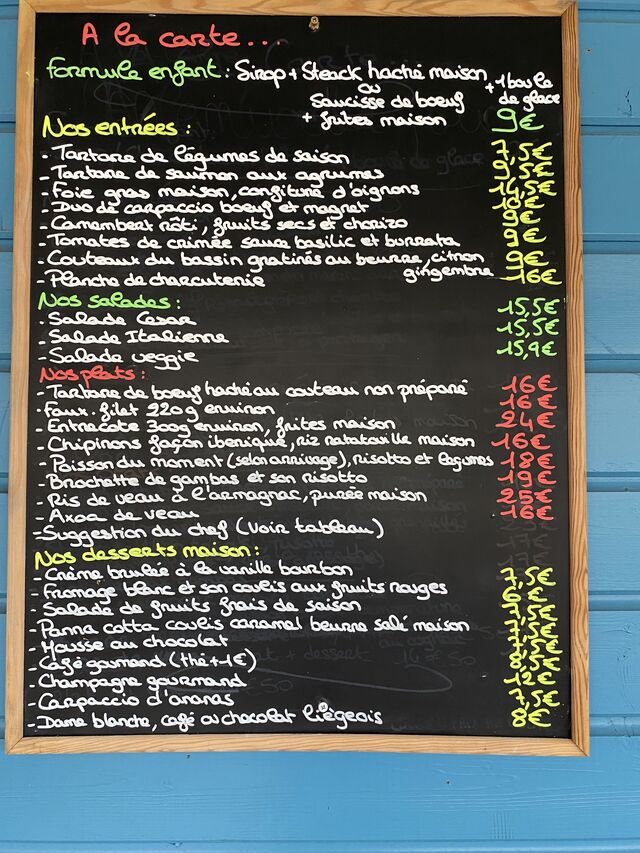 A la carte...
Formule enfant : Sirop + Steack haché maison + 1 boule
ou
de glace
Saucisse de boeuf
+ frites maison
9€
Nos entrées :
- Tartare de légumes de saison
- Tartare de saumon aux agrumes
- Foie gras maison, confiture d'oignons
- Duo de carpaccio boeuf et magret
- Camembert rôti, fruits secs et chorizo
- Tomates de crimée sauce basilic et burrata
- Couteaux du bassin gratinés au beurre, citron
gingembre
- Planche de charcuterie 16€
Nos salades :
- Salade Cesar 15,5€
- Salade Italienne 15,5€
- Salade veggie 15,9€
Nos plats :
- Tartare de boeuf haché au couteau non préparé 16€
- Faux-filet 220g environ 16€
- Entrecote 300g environ, frites maison 24€
- Chipirons façon iberique, riz ratatouille maison 16€
- Poisson du moment (selon arrivage), risotto et legumes 18€
- Brochette de gambas et son risotto 19€
- Ris de veau à l'armagnac, purée maison 25€
- Axoa de veau 16€
- Suggestion du chef (Voir tableau)
Nos desserts maison :
- Crème brulée à la vanille bourbon
- Fromage blanc et son coulis aux fruits rouges
- Salade de fruits frais de saison
- Panna cotta coulis caramel beurre salé maison
- Mousse au chocolat
- Café gourmand (thé +1€)
- Champagne gourmand
- Carpaccio d'ananas
- Dame blanche, café ou chocolat liégeois 8€